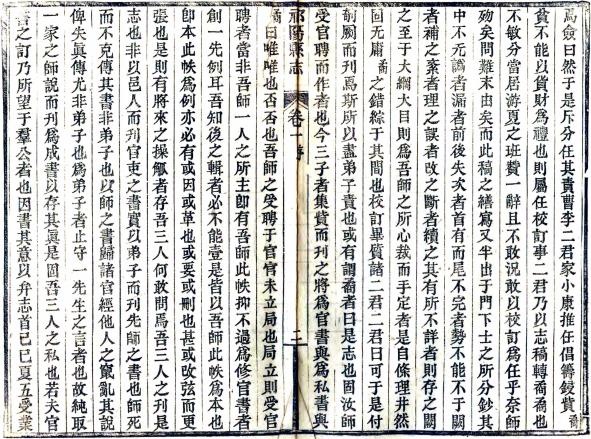 焉僉曰然于是斥分任其責曹李二君家小康推任倡籌鋟貲喬
貧不能以貨財爲禮也則屬任校訂事二君乃以志稿轉喬喬也
不敏分當居游夏之班贊一辭且不敢況敢以校訂爲任乎奈師
歿矣問難末由矣而此稿之繕寫又半出于門下士之所分鈔其
中不元譌者漏者前後失次者首有而尾不完者勢不能不于闕
者補之紊者理之誤者改之斷者續之其有所不詳者則存之闕
之至于大綱大目則爲吾師之所心裁而手定者是自條理井然
回无庸喬之錯綜于其間也校訂畢質諸二君二君曰可于是付
剞劂而刊焉斯所以盡弟子責也或有謂喬者曰是志也固汝師
受官聘而作者也今三子者集貲而刊之將爲官書與爲私書與
祁陽縣志 卷一序 二
喬曰唯唯也否否也吾師之受聘于官官未立局也局立則受官
聘者當非吾師一人之所主卽有吾師此帙抑不過爲修官書者
創一先例耳吾知後之輯者必不能壹是皆以吾師此帙爲本也
卽本此帙爲例亦必有或因或革也或要或刪也甚或改弦而更
張也是則有將來之操觚者存吾三人何敢問焉吾三人之刊是
志也非以邑人而刊官吏之書實以弟子而刊先師之書也師死
而不克傳其書非弟子也以師之書歸諸官經他人之竄亂其說
俾失眞傳尤非弟子也爲弟子者止守一先生之言者也故純取
一家之師說而刊爲成書以存其眞是固吾三人之私也若夫官
書之訂乃所望于羣公者也因書其意以弁志首己巳夏五受業